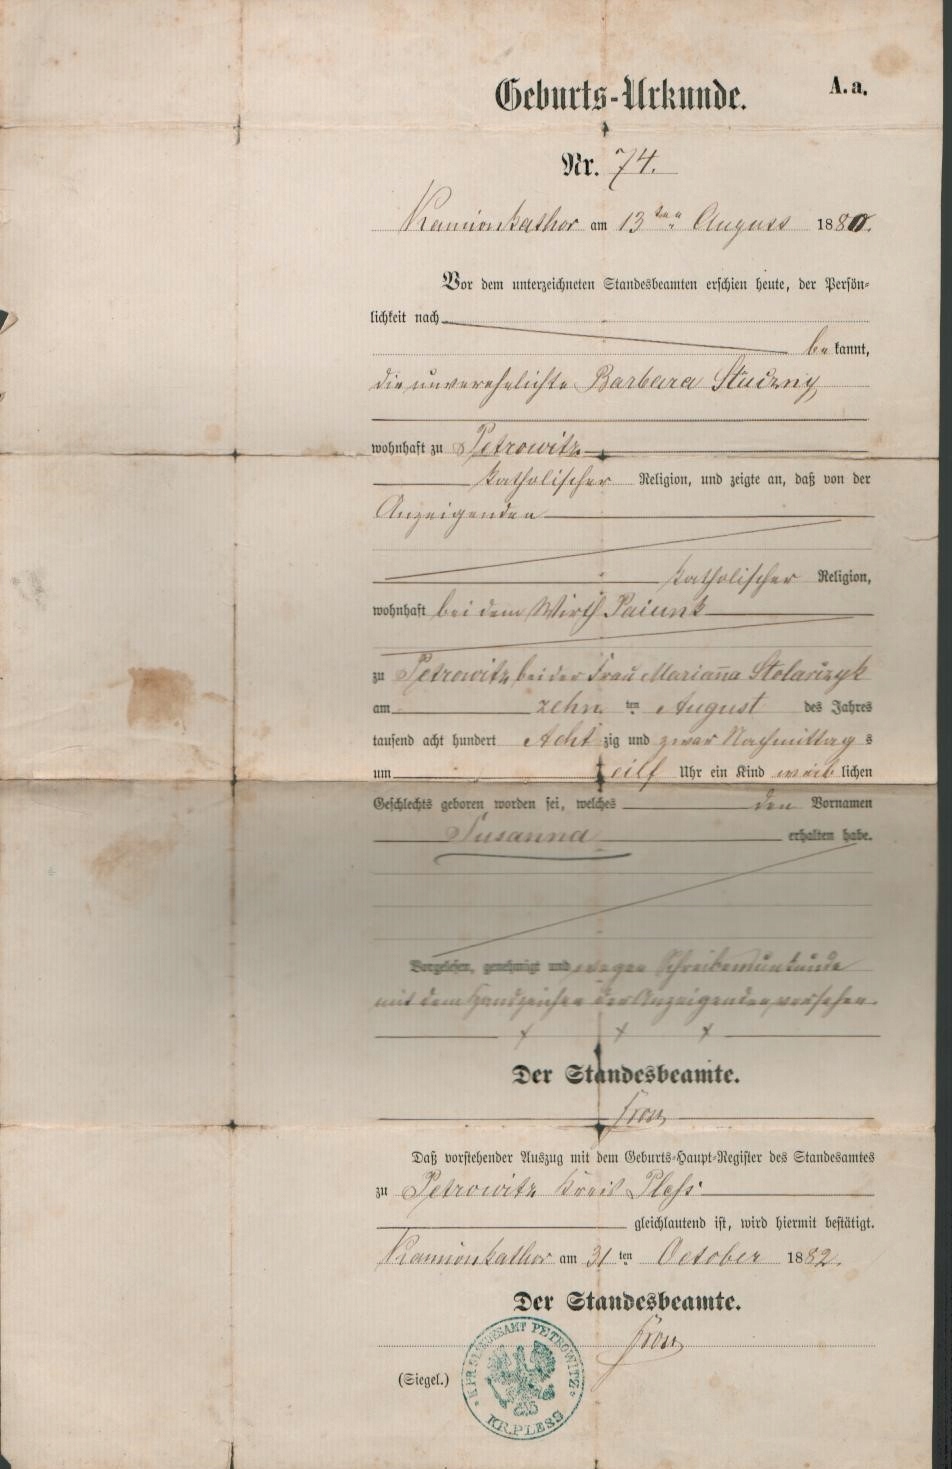 Geburts-Urkunde.
A. a.
Nr. 74.
Kamionkathor am 13ten August 1880.
Vor dem unterzeichneten Standesbeamten erschien heute, der Persön-
lichkeit nach
be kannt,
die unverehelichte Barbara
wohnhaft zu Petrowitz
katholischer Religion, und zeigte an, daß von der
Anzeigenden
katholischer Religion,
wohnhaft bei dem Wirth
zu Petrowitz bei der Frau Marianna Stolarczyk
am zehn ten August des Jahres
tausend acht hundert Acht zig und zwar Nachmittag s
um eilf Uhr ein Kind weib lichen
Geschlechts geboren worden sei, welches den Vornamen
Susanna erhalten habe.
Vorgelesen, genehmigt und wegen Schreibensunkunde
mit dem Handzeichen der Anzeigenden versehen.
+ + +
Der Standesbeamte.
Daß vorstehender Auszug mit dem Geburts-Haupt-Register des Standesamtes
zu Petrowitz Kreis Pleß
gleichlautend ist, wird hiermit bestätigt.
Kamionkathor am 31 ten October 1882.
Der Standesbeamte.
(Siegel.)
K. PR. STANDESAMT PETROWITZ
KR. PLESS